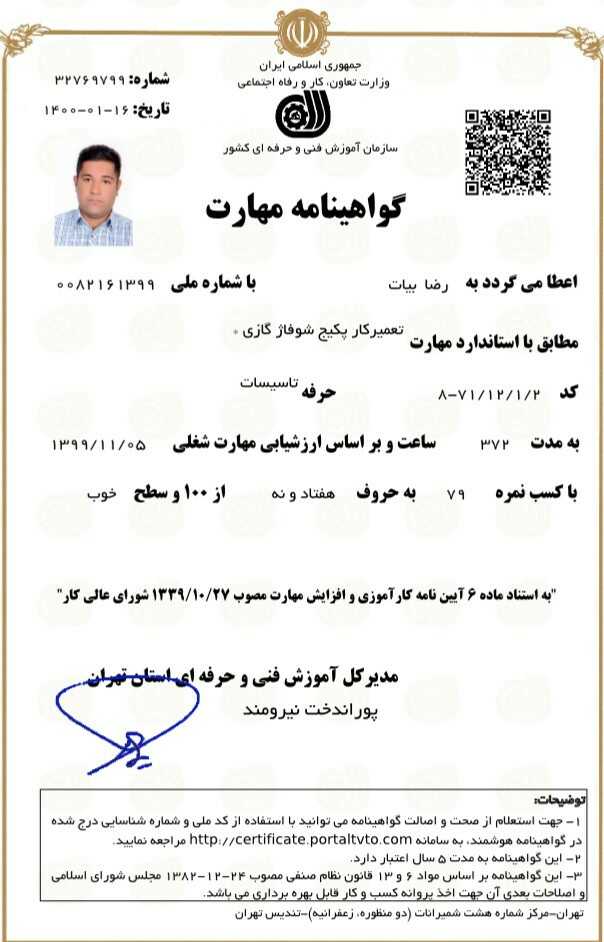 جمهوری اسلامی ایران
وزارت تعاون، کار و رفاه اجتماعی
شماره: ۳۲۷۶۹۷۹۹
تاریخ: ۱۴۰۰-۰۱-۱۶
سازمان آموزش فنی و حرفه ای کشور
گواهینامه مهارت
اعطا می گردد به رضا بیات با شماره ملی ۰۰۸۲۱۶۱۳۹۹
مطابق با استاندارد مهارت تعمیرکار پکیج شوفاژ گازی *
کد ۸-۷۱/۱۲/۱/۲ حرفه تاسیسات
به مدت ۳۷۲ ساعت و بر اساس ارزشیابی مهارت شغلی ۱۳۹۹/۱۱/۰۵
با کسب نمره ۷۹ به حروف هفتاد و نه از ۱۰۰ و سطح خوب
"به استناد ماده ۶ آیین نامه کارآموزی و افزایش مهارت مصوب ۱۳۳۹/۱۰/۲۷ شورای عالی کار"
مدیرکل آموزش فنی و حرفه ای استان تهران
پوراندخت نیرومند
توضیحات:
۱- جهت استعلام از صحت و اصالت گواهینامه می توانید با استفاده از کد ملی و شماره شناسایی درج شده
در گواهینامه هوشمند، به سامانه http://certificate.portaltvto.com مراجعه نمایید.
۲- این گواهینامه به مدت ۵ سال اعتبار دارد.
۳- این گواهینامه بر اساس مواد ۶ و ۱۳ قانون نظام صنفی مصوب ۲۴-۱۲-۱۳۸۲ مجلس شورای اسلامی
و اصلاحات بعدی آن جهت اخذ پروانه کسب و کار قابل بهره برداری می باشد.
تهران-مرکز شماره هشت شمیرانات (دو منظوره، زعفرانیه)-تندیس تهران